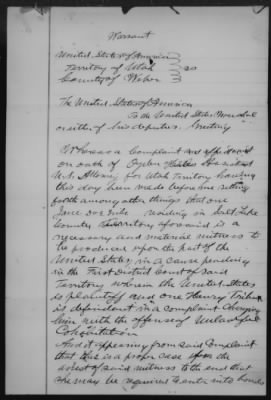 Warrant
United States of America
Territory of Utah ss
County of Weber
The United States of America
To the United States Marshal
or either of his deputies. Greeting
Whereas a Complaint and affidavit
on oath of Ogden Hiles Assistant
U.S. Attorney for Utah Territory having
this day been made before me setting
forth among other things that one
Jane residing in Salt Lake
County Territory aforesaid is a
necessary and material witness to
be produced upon the part of the
United States in a cause pending
in the First District Court of said
Territory wherein the United States
is plaintiff and one Henry
is defendant in a complaint Charging
him with the offense of Unlawful
Cohabitation
And it appearing from said Complaint
that this is a proper case upon the
arrest of said witness to the end that
she may be required to enter into bonds